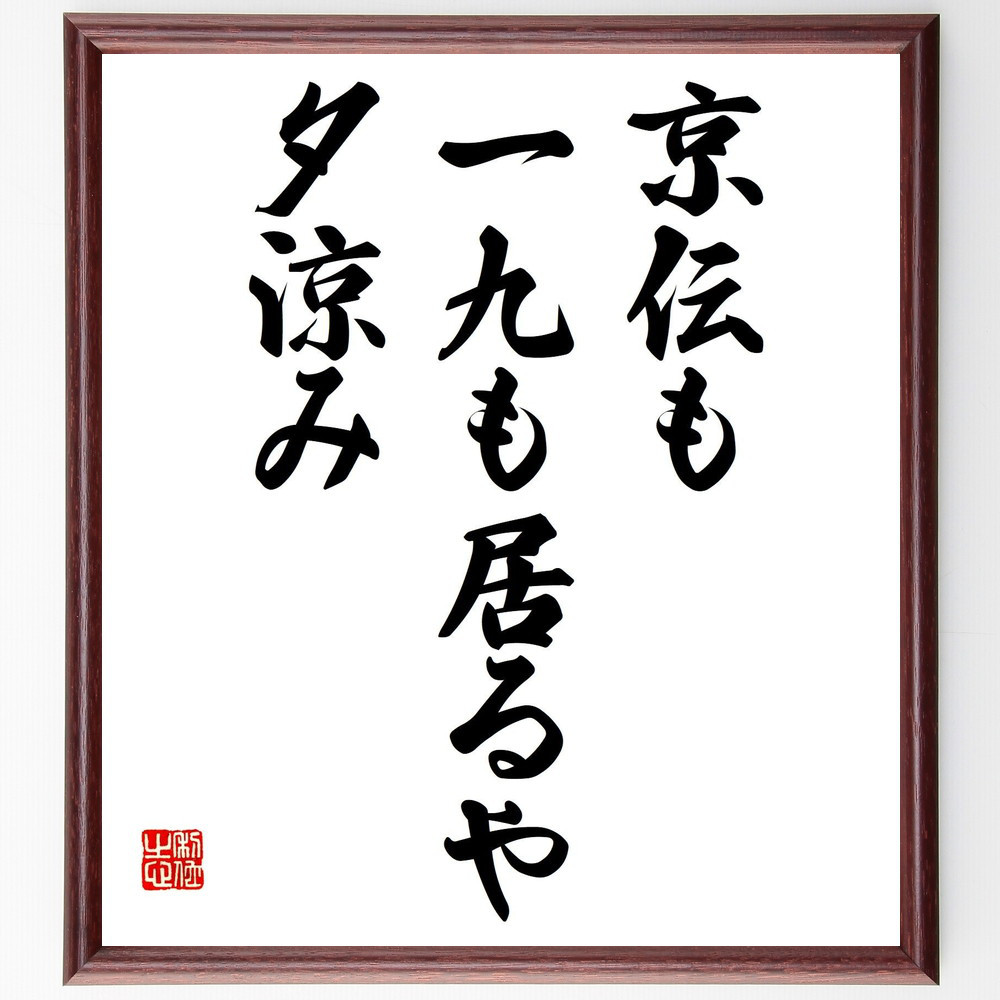 京伝も
一九も居るや
夕涼み